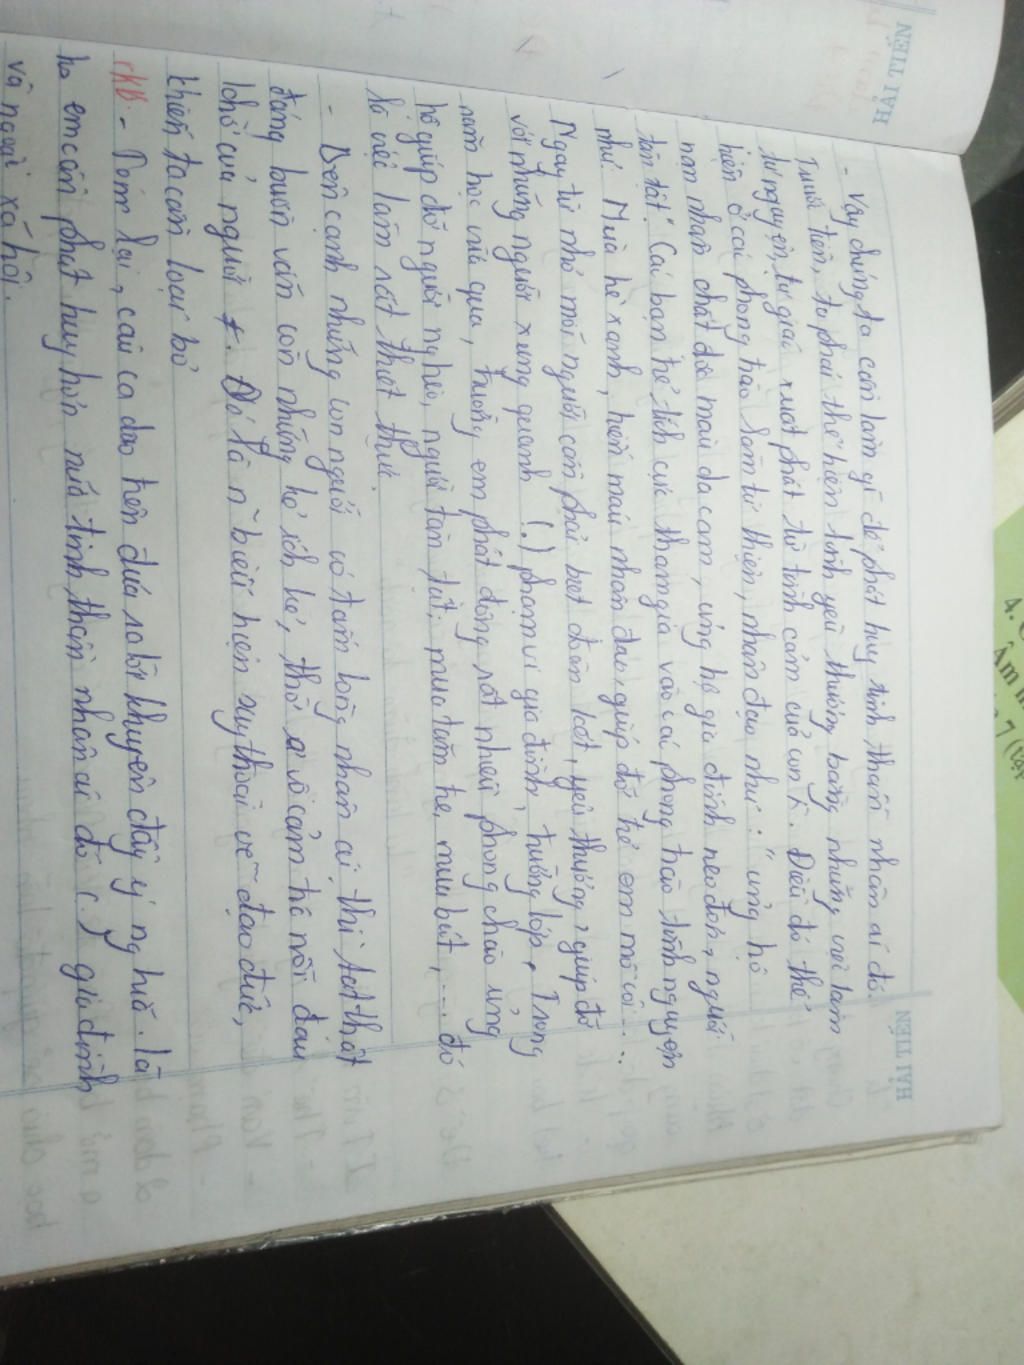 HẢI TIẾN
HẢI TIẾN
- Vậy chúng ta cần làm gì để phát huy tinh thần nhân ái đó.
Trước tiên, ta phải thể hiện tình yêu thương bằng những việc làm
tự nguyện, tự giác xuất phát từ tình cảm của con . Điều đó thể
hiện ở các phong trào làm từ thiện, nhân đạo như: "ủng hộ
nạn nhân chất độc màu da cam, ủng hộ gia đình neo đơn, người
tàn tật". Các bạn trẻ tích cực tham gia vào các phong trào tình nguyện
như: Mùa hè xanh, hiến máu nhân đạo, giúp đỡ trẻ em mồ côi...
Ngay từ nhỏ mỗi người cần phải biết đoàn kết, yêu thương, giúp đỡ
với những người xung quanh (.) phạm vi gia đình, trường lớp. Trong
năm học vừa qua, trường em phát động rất nhiều phong chào ủng
hộ giúp đỡ người nghèo, người tàn tật: mua tăm tre, mua bút, ... đó
là việc làm rất thiết thực.
- Bên cạnh những con người có tấm lòng nhân ái thì thật
đáng buồn vẫn còn những kẻ ích kỉ, thờ ơ vô cảm trước nỗi đau
khổ của người . Đó là n~ biểu hiện suy thoái về đạo đức,
khiến ta cần loại bỏ
*KB. - Tóm lại, câu ca dao trên đưa ra lời khuyên đầy ý nghĩa. là
hs em cần phát huy hơn nữa tinh thần nhân ái đó (.) gia đình
và ngoài xã hội.
4.
Âm n
7 (tập